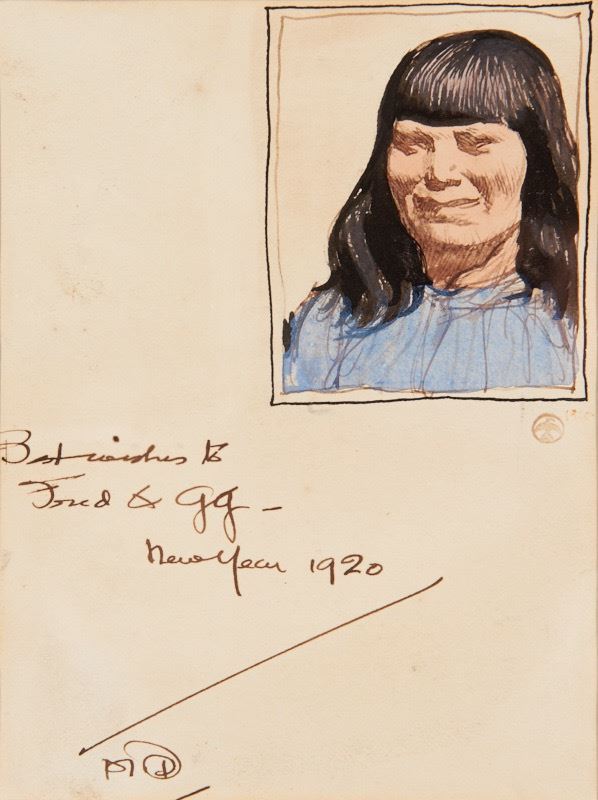 Best wishes to
Fred & GG -
New Year 1920
MD